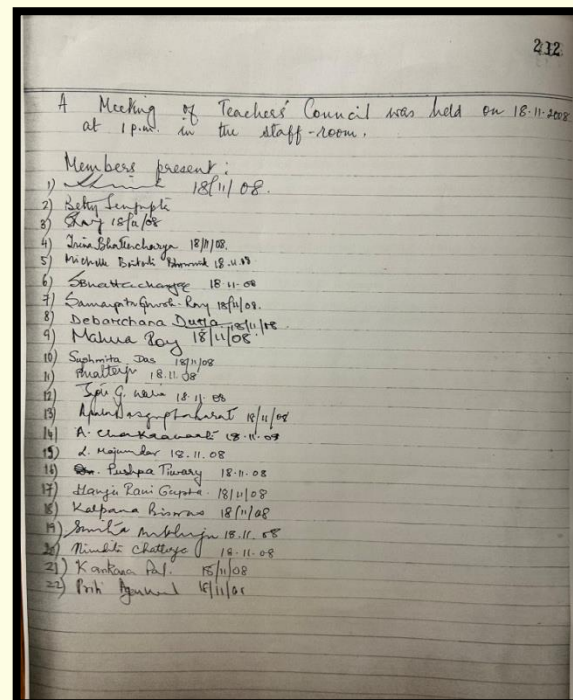 232
A Meeting of Teachers' Council was held on 18.11.2008
at 1 p.m. in the staff-room.
Members present:
1) 18/11/08.
2) Betty Sengupta
3) 18/11/08
4) Irina Bhattacharya 18/11/08.
5) Michelle 18.11.08
6) SBhattacharjee 18.11.08
7) Samarpita Ghosh-Roy 18/11/08.
8) Debarchana Dutta 18/11/08
9) Mahua Roy 18/11/08.
10) Sushmita Das 18/11/08
11) 18.11.08
12) 18.11.08
13) 18/11/08
14) A. 18.11.08
15) L. Majumdar 18.11.08
16) Pushpa Tiwary 18.11.08
17) Rani Gupta 18/11/08
18) Kalpana Biswas 18/11/08
19) Smita 18.11.08
20) Nivedita Chatterjee 18.11.08
21) Kankana Pal. 18/11/08
22) Priti Agarwal 18/11/08